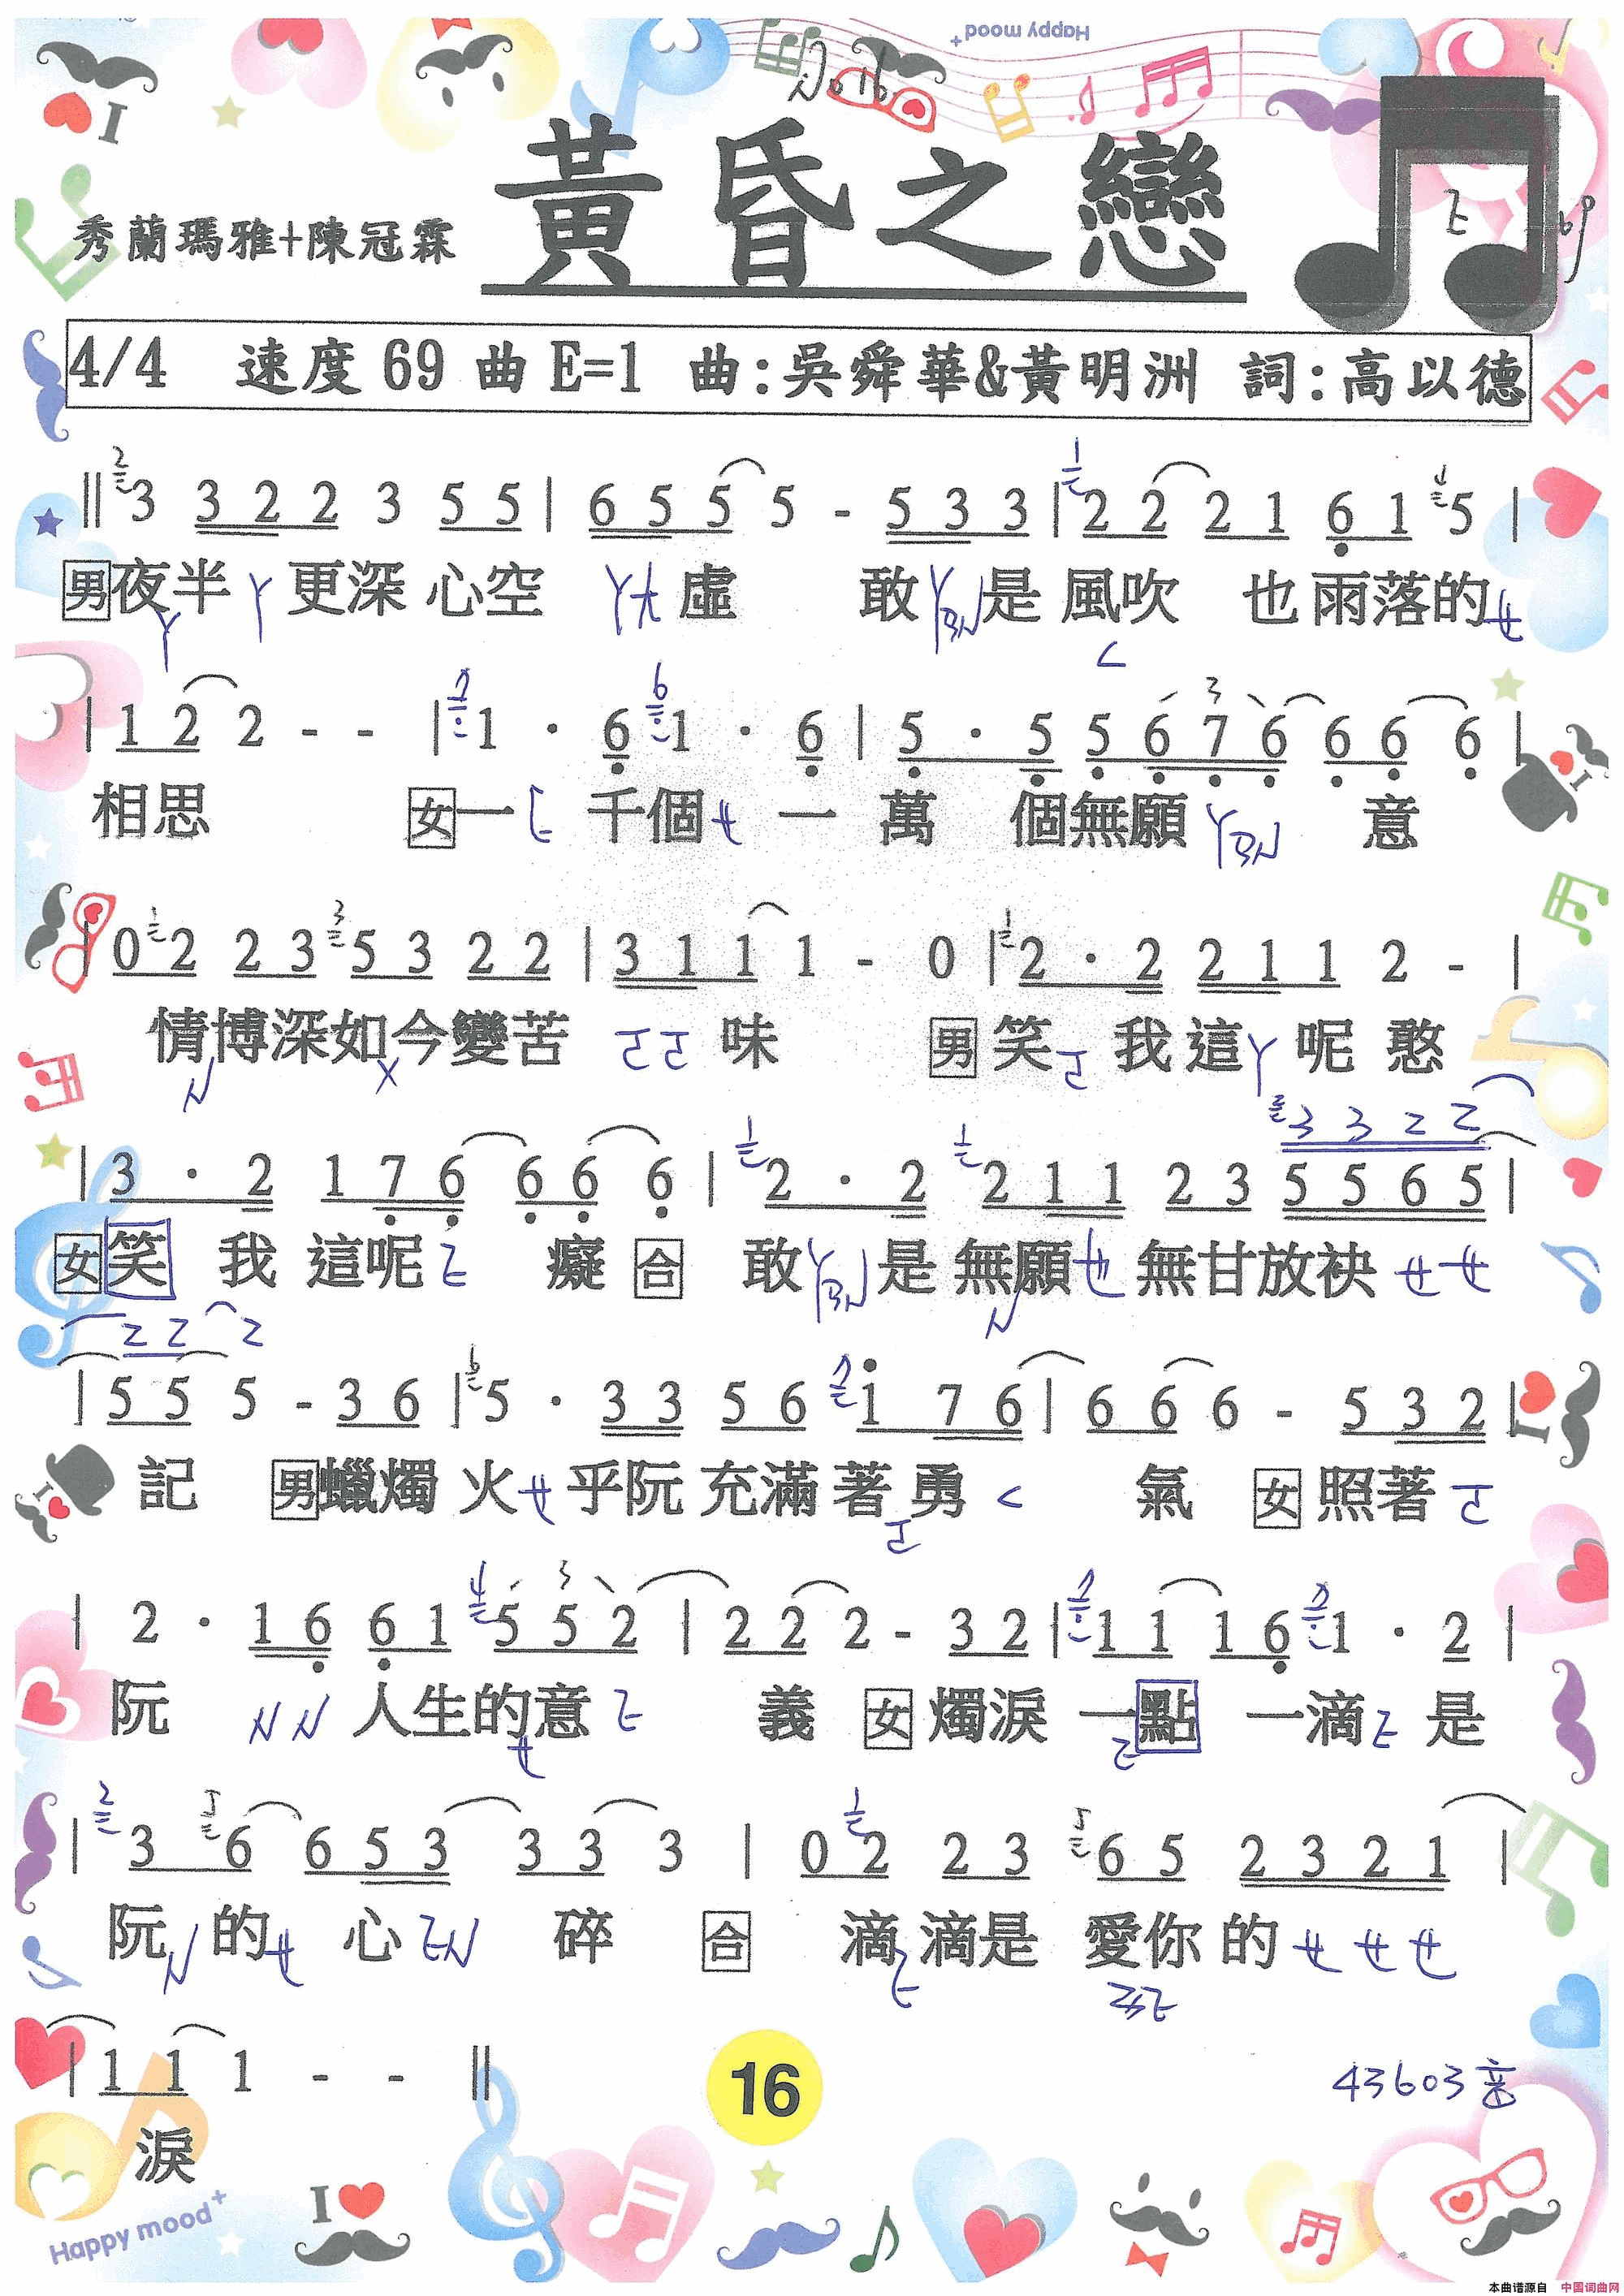 Happy mood+
No 16
黃昏之戀
秀蘭瑪雅+陳冠霖
4/4 速度 69 曲 E=1 曲:吳舜華&黃明洲 詞:高以德
3 3 2 2 3 5 5 | 6 5 5 5 - 5 3 3 | 2 2 2 1 6 1 5 |
男 夜半 更深 心空 虛 敢 是 風吹 也 雨落的
| 1 2 2 - - | 1 · 6 1 · 6 | 5 · 5 5 6 7 6 6 6 6 |
相思 女 一 千個 一 萬 個無願 意
| 0 2 2 3 5 3 2 2 | 3 1 1 1 - 0 | 2 · 2 2 1 1 2 - |
情博深如今變苦 味 男 笑 我 這 呢 憨
3 3 2 2
| 3 · 2 1 7 6 6 6 6 | 2 · 2 2 1 1 2 3 5 5 6 5 |
女 笑 我 這呢 癡 合 敢 是 無願 無甘放袂
2 2 2
| 5 5 5 - 3 6 | 5 · 3 3 5 6 1 7 6 | 6 6 6 - 5 3 2 |
記 男 蠟燭 火 乎阮 充滿著 勇 氣 女 照著
| 2 · 1 6 6 1 5 5 2 | 2 2 2 - 3 2 | 1 1 1 6 1 · 2 |
阮 人生的意 義 女 燭淚 一點 一滴 是
| 3 6 6 5 3 3 3 3 | 0 2 2 3 6 5 2 3 2 1 |
阮 的 心 碎 合 滴 滴是 愛你 的
| 1 1 1 - - ||
淚
16
43603
Happy mood+
I
本曲谱源自 中国词曲网